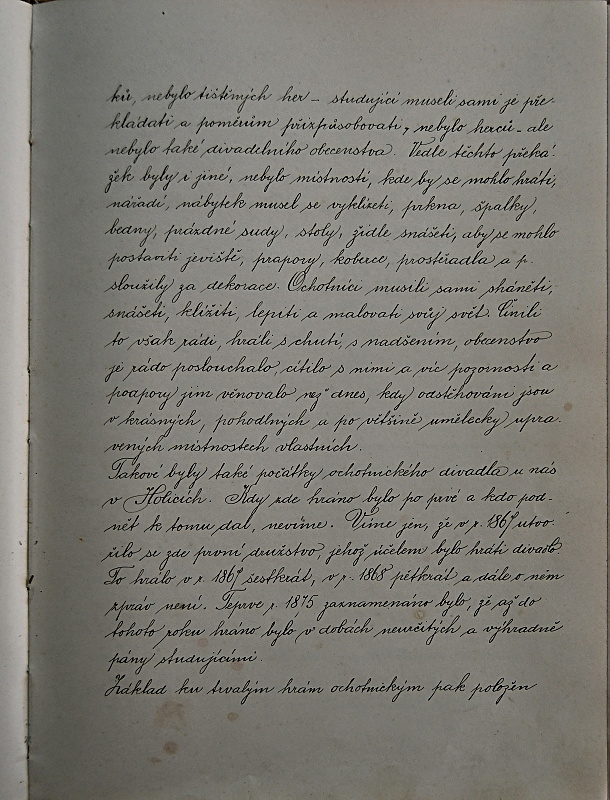 ků, nebylo tištěných her – studující museli sami je pře-
kládati a poměrům přizpůsobovati, nebylo herců – ale
nebylo také divadelního obecenstva. Vedle těchto překá-
žek byly i jiné, nebylo místností, kde by se mohlo hráti,
nářadí, nábytek musel se vyklízeti, prkna, špalky,
bedny, prázdné sudy, stoly, židle snášeti, aby se mohlo
postaviti jeviště, prapory, koberce, prostěradla a p.
sloužily za dekorace. Ochotníci musili sami sháněti,
snášeti, klížiti, lepiti a malovati svůj svět. Činili
to však rádi, hráli s chutí, s nadšením, obecenstvo
je rádo poslouchalo, cítilo s nimi a víc pozornosti a
podpory jim věnovalo než dnes, kdy odstěhováni jsou
v krásných, pohodlných a po většině umělecky upra-
vených místnostech vlastních.
Takové byly také počátky ochotnického divadla u nás
v Holicích. Kdy zde hráno bylo po prvé a kdo pod-
nět k tomu dal, nevíme. Víme jen, že v r. 1867 utvo-
řilo se zde první družstvo, jehož účelem bylo hráti divadlo.
To hrálo v r. 1867 šestkrát, v r. 1868 pětkrát a dále o něm
zpráv není. Teprve r. 1875 zaznamenáno bylo, že až do
tohoto roku hráno bylo v dobách neurčitých a výhradně
pány studujícími.
Základ ku trvalým hrám ochotnickým pak položen